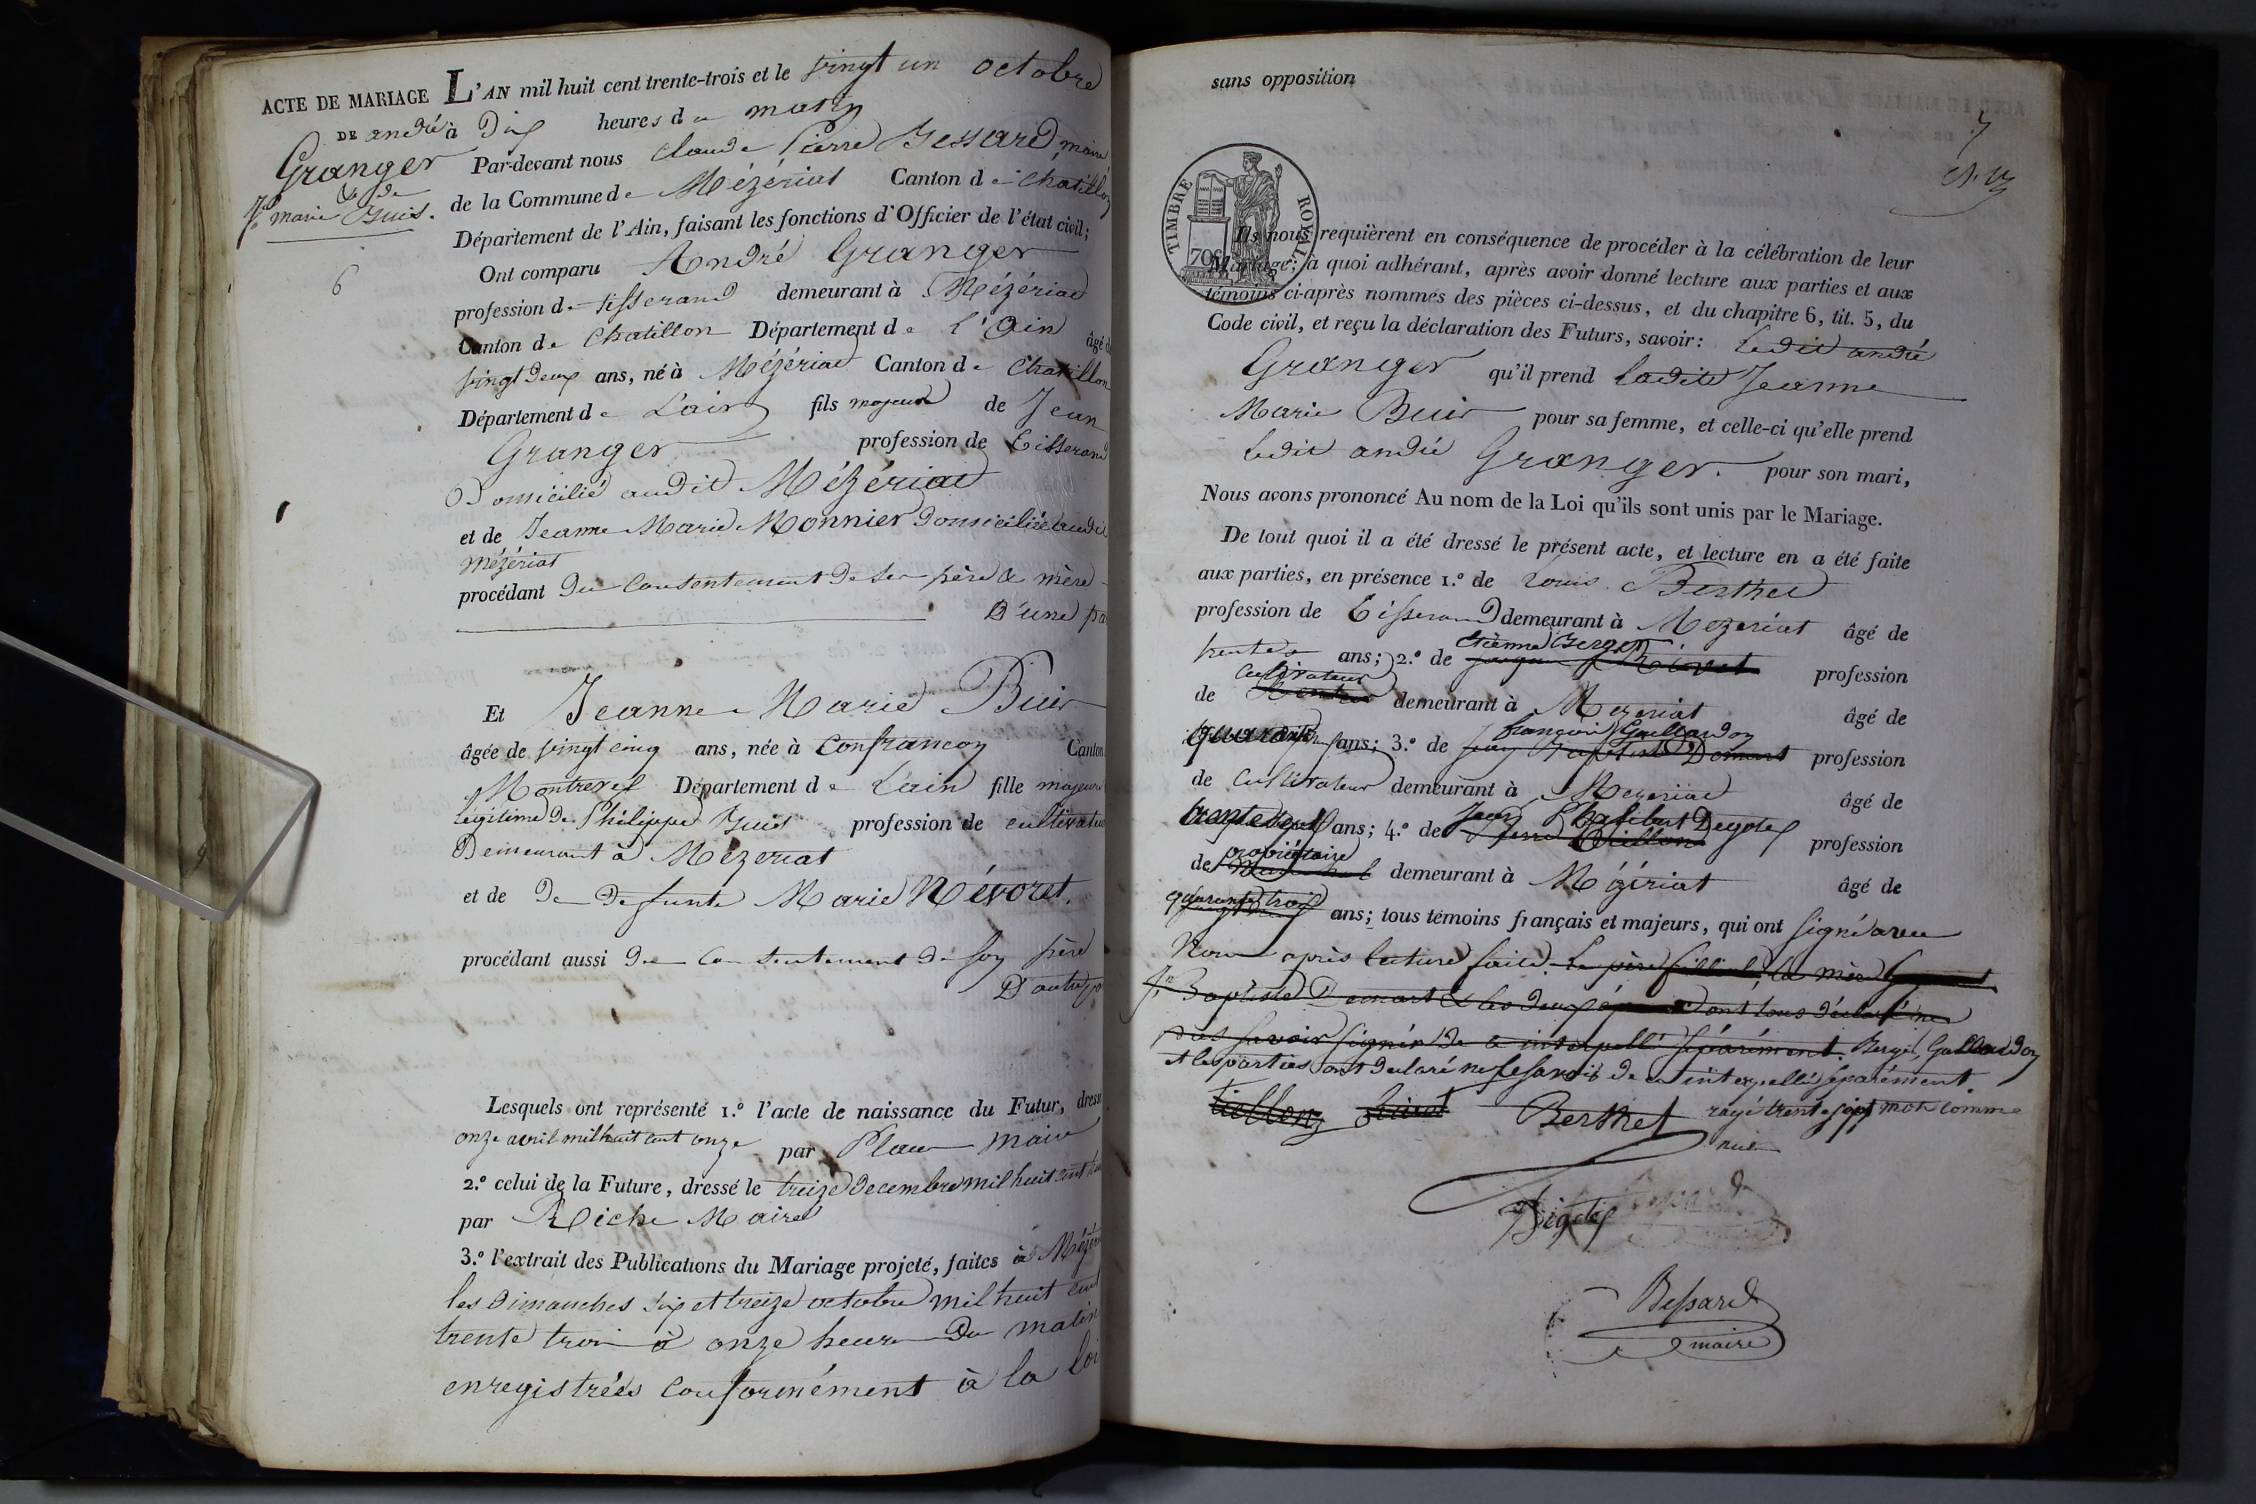 ACTE DE MARIAGE L'AN mil huit cent trente-trois et le vingt un octobre
DE andré à Dix heures du matin
Granger Par-devant nous Claude Pierre Bessard maire
& de
Jne marie Buis. de la Commune de Mézériat Canton de Chatillon
Département de l'Ain, faisant les fonctions d'Officier de l'état civil;
6 Ont comparu André Granger
profession de tisserand demeurant à Mézériat
Canton de Chatillon Département de L'Ain âgé de
vingt deux ans, né à Mézériat Canton de Chatillon
Département de L'ain fils majeur de Jean
Granger profession de tisserand
Domicilié audit Mézériat
et de Jeanne Marie Monnier domiciliée audit
Mézériat
procédant du consentement de ses père & mère
D'une pa
Et Jeanne Marie Buis
âgée de vingt cinq ans, née à Confrançon Canton
Montrevel Département de L'ain fille majeure
légitime de Philippe Buis profession de cultivateur
Demeurant à Mézeriat
et de De defunte Marie Névoret.
procédant aussi du consentement de son père
D'autre pa
Lesquels ont représenté 1.º l'acte de naissance du Futur, dress
onze avril mil huit cent onze par Maire
2.º celui de la Future, dressé le treize decembre mil huit cent
par Riche Maire
3.º l'extrait des Publications du Mariage projeté, faites à Mézér
les Dimanches six et treize octobre mil huit cent
trente trois à onze heures du matin
enregistrées conformément à la loi
sans opposition
7
TIMBRE ROYAL
70c
Ils nous requièrent en conséquence de procéder à la célébration de leur
Mariage; à quoi adhérant, après avoir donné lecture aux parties et aux
témoins ci-après nommés des pièces ci-dessus, et du chapitre 6, tit. 5, du
Code civil, et reçu la déclaration des Futurs, savoir: Ledit andré
Granger qu'il prend ladite Jeanne
Marie Buis pour sa femme, et celle-ci qu'elle prend
Ledit andré Granger. pour son mari,
Nous avons prononcé Au nom de la Loi qu'ils sont unis par le Mariage.
De tout quoi il a été dressé le présent acte, et lecture en a été faite
aux parties, en présence 1.º de Louis Berthet
profession de tisserand demeurant à Mezeriat âgé de
Etienne Berger
trente ans; 2.º de profession
cultivateur
de demeurant à Mezeriat âgé de
françois Gaillardon
quarante ans; 3.º de Jean Baptiste Domart profession
de Cultivateur demeurant à Mezeriat âgé de
Jean Degoles
ans; 4.º de Pierre Tiellon profession
propriétaire
de demeurant à Mézériat âgé de
quarante trois
ans; tous témoins français et majeurs, qui ont signé avec
Nous après lecture faite. Le père la mère
Jn Baptiste Domart & les deux époux ont tous déclaré ne
pas savoir signer de ce interpellé séparément. Berger, Gaillardon
et les parties ont déclaré ne le savoir de ce interpellé séparément.
Tiellon Berthet rayé trente sept mots comme
nuls
Degoles
Bessard
maire